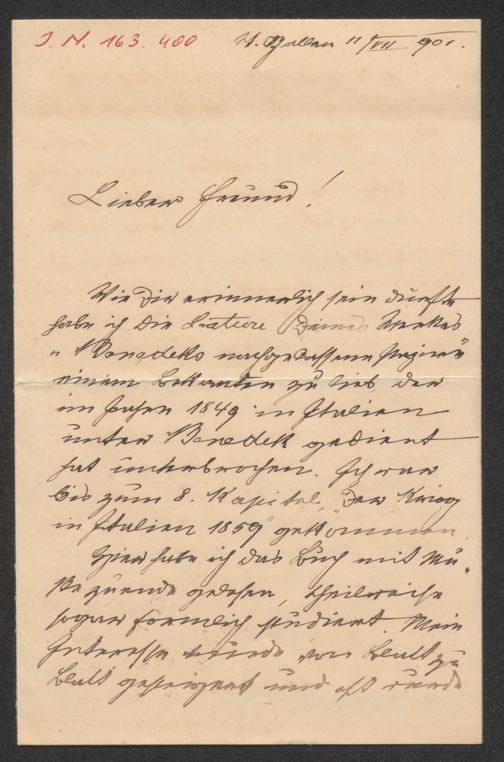 J. N. 163.400
St. Gallen 11/VII 901.
Lieber Freund!
Wie Dir erinnerlich sein dürfte
habe ich die Lecture Deines Werkes
"Benedeks nachgelassene Papiere"
einem Bekannten zu lieb der
im Jahre 1849 in Italien
unter Benedek gedient
hat unterbrochen. Ich war
bis zum 8. Kapitel "Der Krieg
in Italien 1859" gekommen.
Hier habe ich das Buch mit Mu-
ße zuende gelesen, theilweise
sogar förmlich studiert. Mein
Interesse wurde von Blatt zu
Blatt gesteigert und oft wurde